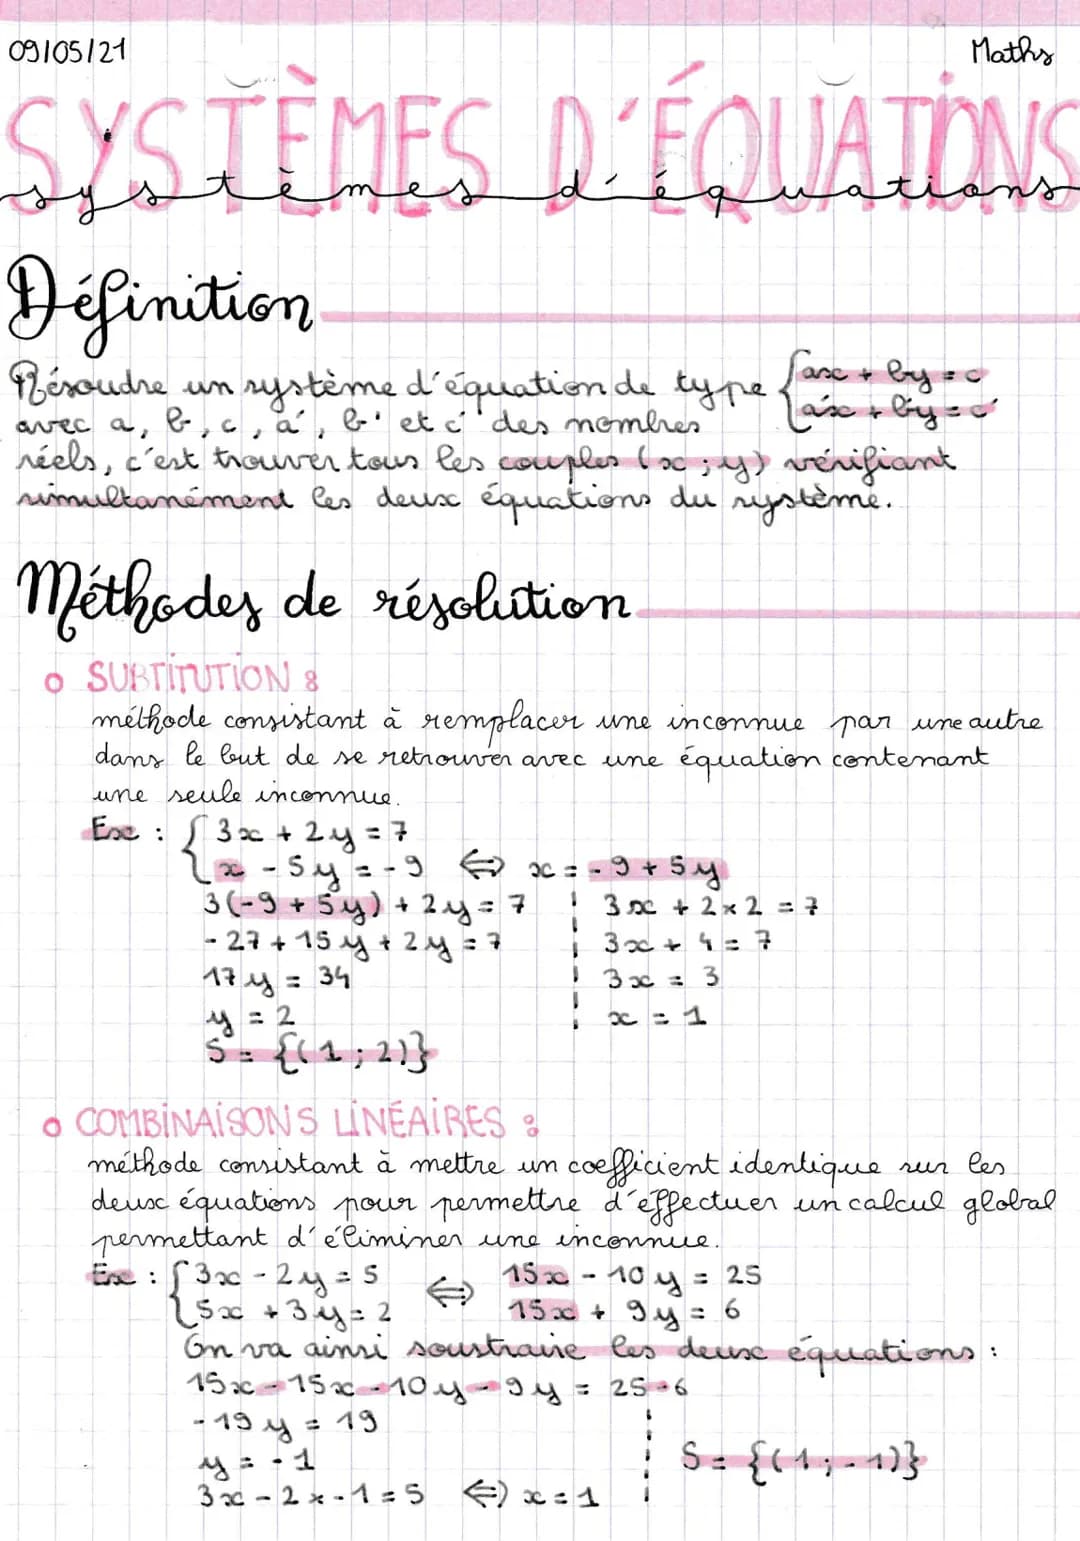 09/05/21
Maths
SYSTÈMES D'ÉQUATIONS
systèmes d'équations
Définition
Résoudre un système d'équation de type { ax + by = c
a'x + b'y = c'
avec a, b, c, a', b' et c' des nombres
réels, c'est trouver tous les couples (x ; y) vérifiant
simultanément les deux équations du système.
Méthodes de résolution
o SUBTITUTION :
méthode consistant à remplacer une inconnue par une autre
dans le but de se retrouver avec une équation contenant
une seule inconnue.
Ex : { 3x + 2y = 7
x - 5y = -9 ⇔ x = -9 + 5y
3(-9 + 5y) + 2y = 7
-27 + 15y + 2y = 7
17y = 34
y = 2
3x + 2×2 = 7
3x + 4 = 7
3x = 3
x = 1
S = {(1 ; 2)}
o COMBINAISONS LINÉAIRES :
méthode consistant à mettre un coefficient identique sur les
deux équations pour permettre d'effectuer un calcul global
permettant d'éliminer une inconnue.
Ex : { 3x - 2y = 5 ⇔ 15x - 10y = 25
5x + 3y = 2 15x + 9y = 6
On va ainsi soustraire les deux équations :
15x - 15x - 10y - 9y = 25 - 6
-19y = 19
y = -1
3x - 2×-1 = 5 ⇔ x = 1
S = {(1 ; -1)}